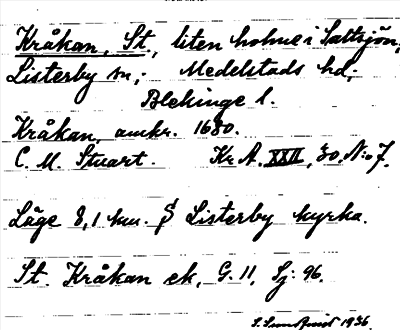 Kråkan, St., liten holme i Saltsjön,
Listerby sn,; Medelstads hd,;
Blekinge l.
Kråkan, omkr. 1680.
C. M. Stuart. Kr. A. XXII, 30. No 7.
Läge 8,1 km. S Listerby kyrka.
St. Kråkan ek, G. 11, Sj: 96.
S. Sundqvist 1936